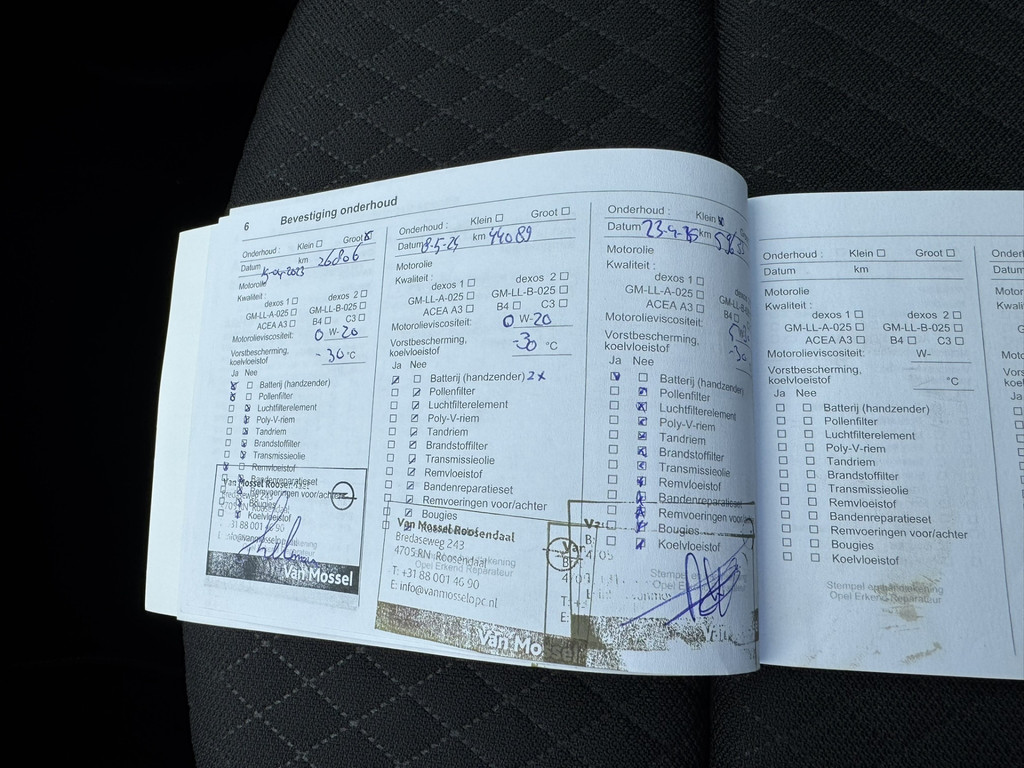 6 Bevestiging onderhoud
Onderhoud : Klein Groot
Datum 15-04-2023 km 26806
Motorolie
Kwaliteit :
dexos 1 dexos 2
GM-LL-A-025 GM-LL-B-025
ACEA A3 B4 C3
Motorolieviscositeit: 0 W-20
Vorstbescherming,
koelvloeistof -30 °C
Ja Nee
Batterij (handzender)
Pollenfilter
Luchtfilterelement
Poly-V-riem
Tandriem
Brandstoffilter
Transmissieolie
Remvloeistof
Bandenreparatieset
Remvoeringen voor/achter
Bougies
Koelvloeistof
Van Mossel
Onderhoud : Klein Groot
Datum 8-5-24 km 44089
Motorolie
Kwaliteit :
dexos 1 dexos 2
GM-LL-A-025 GM-LL-B-025
ACEA A3 B4 C3
Motorolieviscositeit: 0 W-20
Vorstbescherming,
koelvloeistof -30 °C
Ja Nee
Batterij (handzender) 2x
Pollenfilter
Luchtfilterelement
Poly-V-riem
Tandriem
Brandstoffilter
Transmissieolie
Remvloeistof
Bandenreparatieset
Remvoeringen voor/achter
Bougies
Van Mossel Roosendaal
Bredaseweg 243
4705 RN Roosendaal
Opel Erkend Reparateur
T: +31 88 001 46 90
E: info@vanmosselopc.nl
Onderhoud : Klein
Datum 23-4-25 km
Motorolie
Kwaliteit :
dexos 1
GM-LL-A-025
ACEA A3
Motorolieviscositeit:
Vorstbescherming,
koelvloeistof -30
Ja Nee
Batterij (handzender)
Pollenfilter
Luchtfilterelement
Poly-V-riem
Tandriem
Brandstoffilter
Transmissieolie
Remvloeistof
Bandenreparatieset
Remvoeringen
Bougies
Koelvloeistof
Onderhoud : Klein Groot
Datum km
Motorolie
Kwaliteit :
dexos 1 dexos 2
GM-LL-A-025 GM-LL-B-025
ACEA A3 B4 C3
Motorolieviscositeit: W-
Vorstbescherming,
koelvloeistof °C
Ja Nee
Batterij (handzender)
Pollenfilter
Luchtfilterelement
Poly-V-riem
Tandriem
Brandstoffilter
Transmissieolie
Remvloeistof
Bandenreparatieset
Remvoeringen voor/achter
Bougies
Koelvloeistof
Stempel en handtekening
Opel Erkend Reparateur